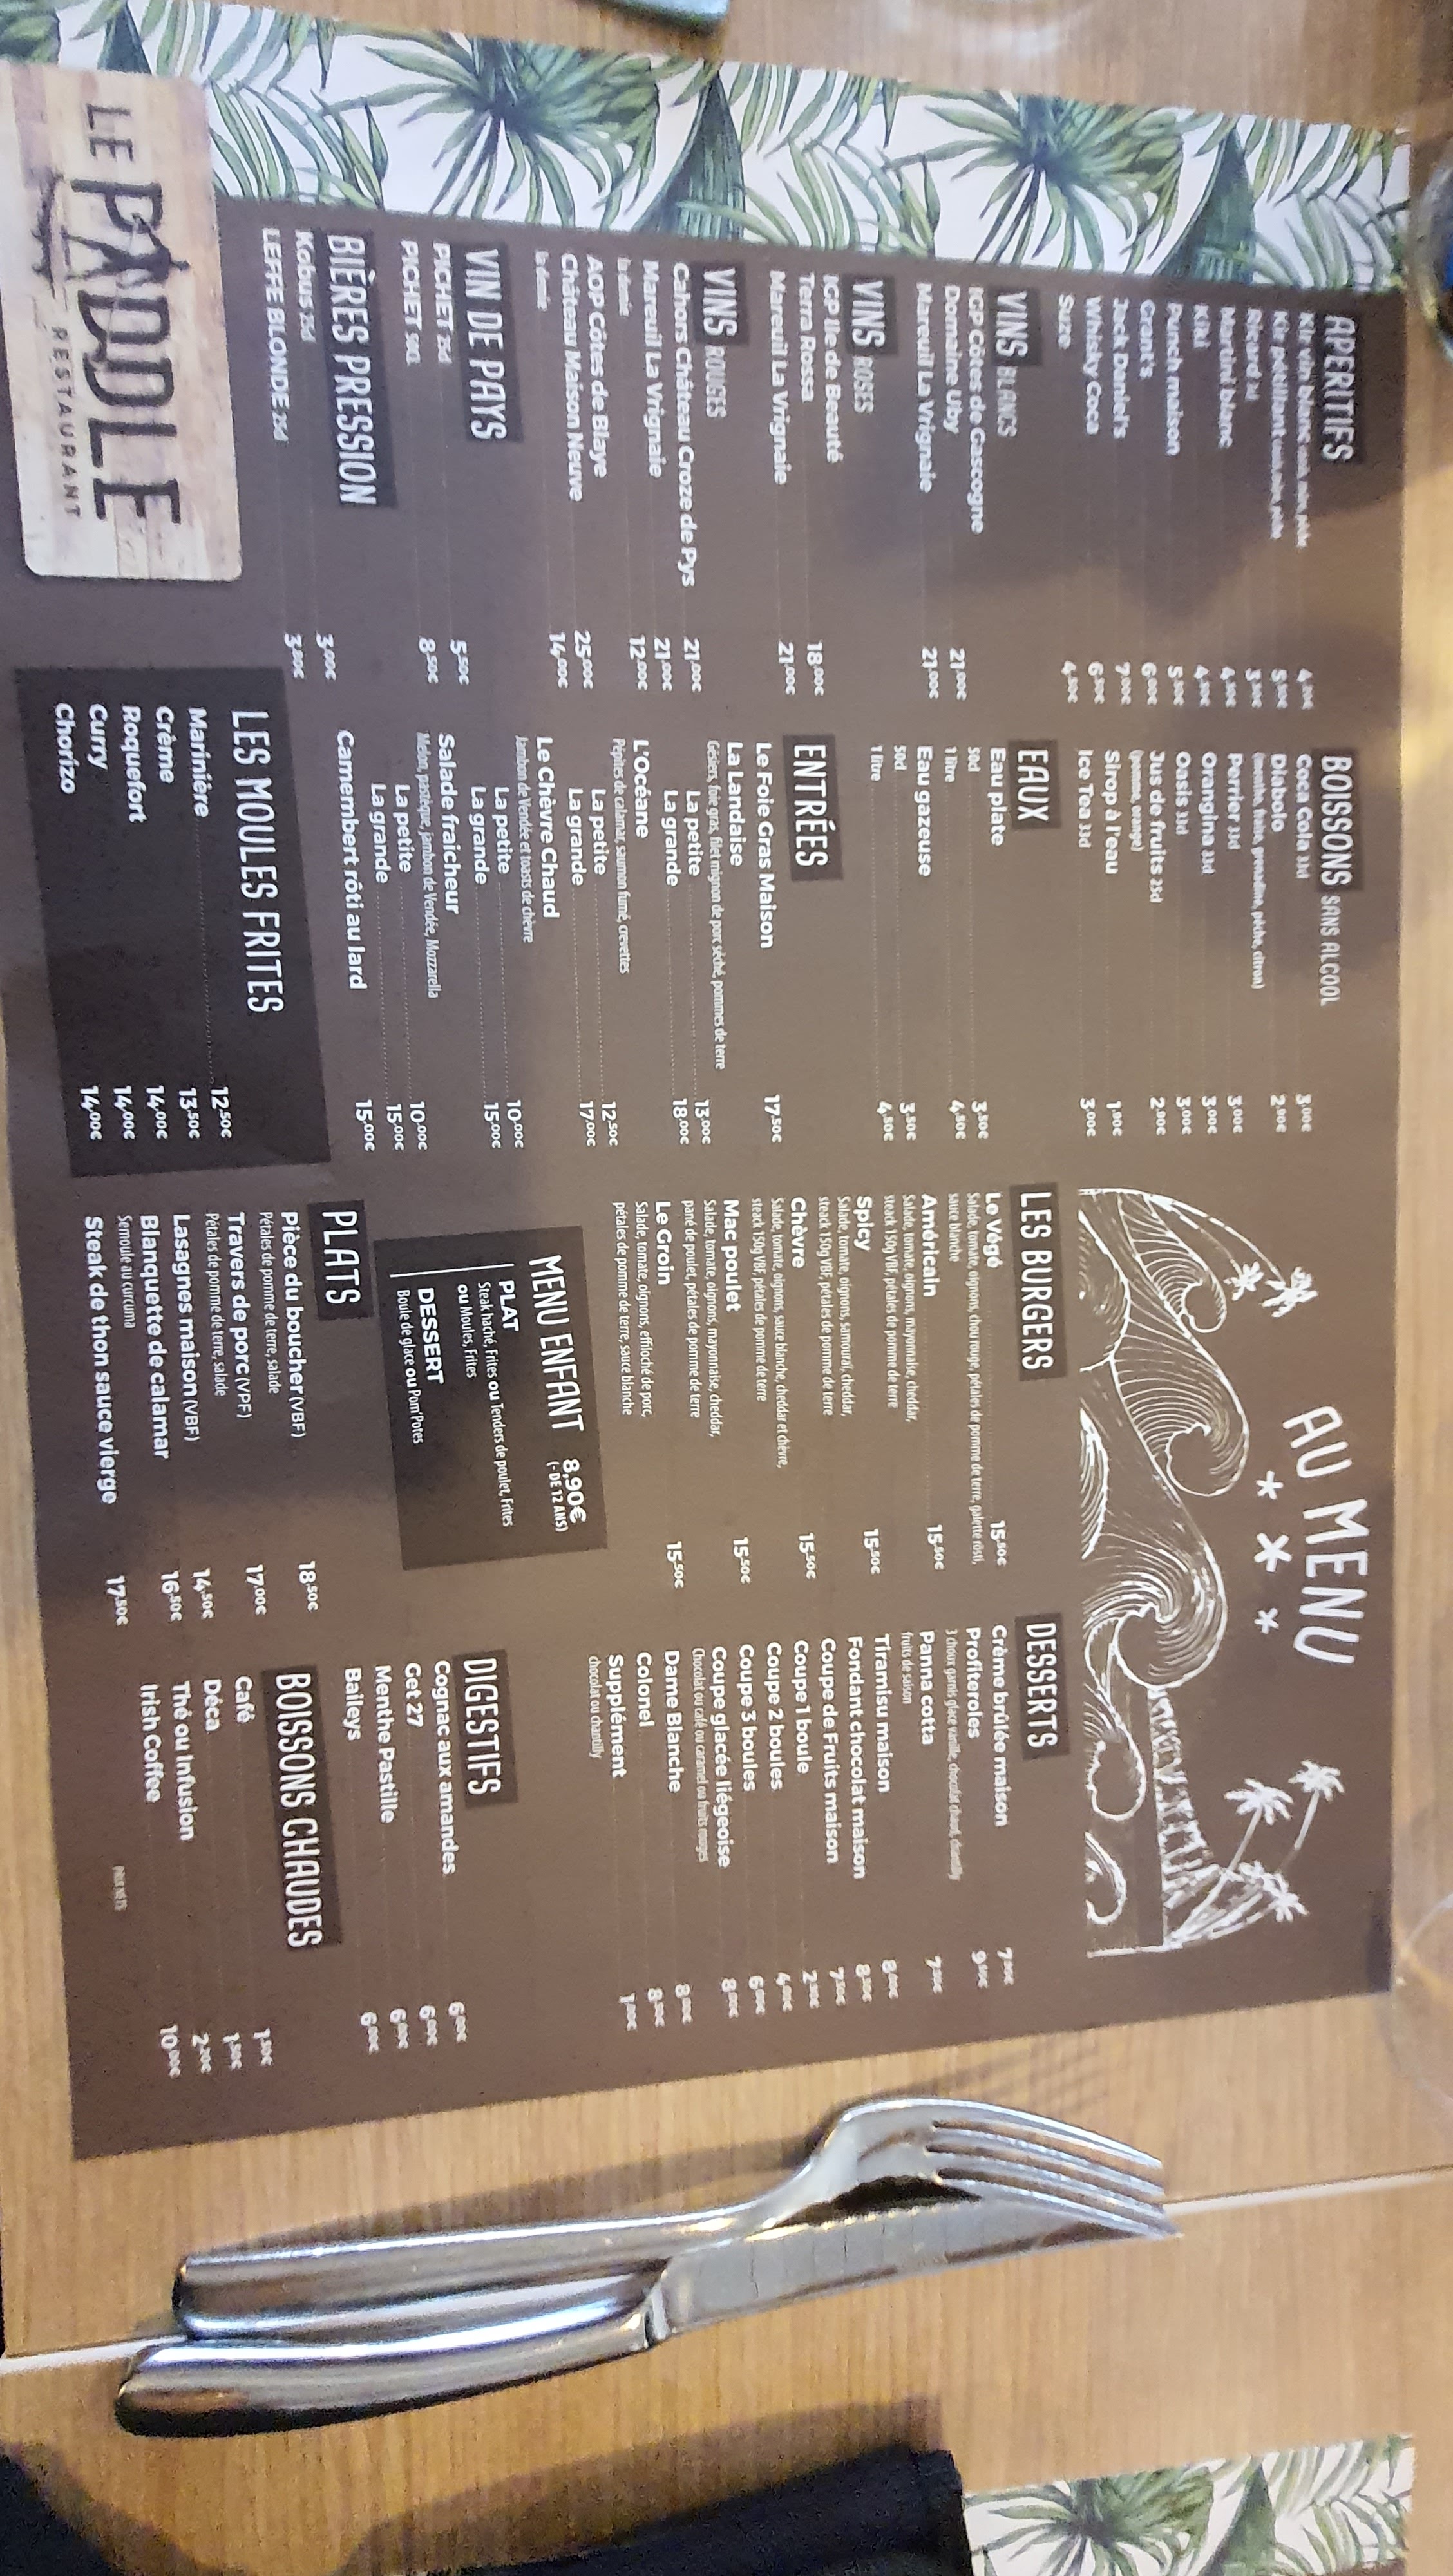 AU MENU
APERITIFS
Kir vin blanc cassis, mûre, pêche 4,50€
Kir pétillant cassis, mûre, pêche 5,50€
Ricard 2cl 3,50€
Martini blanc 4,50€
Kiki 4,50€
Punch maison 5,50€
Grant's 6,00€
Jack Daniel's 7,00€
Whisky Coca 6,50€
Suze 4,50€
VINS BLANCS
IGP Côtes de Gascogne
Domaine Uby 21,00€
Mareuil La Vrignaie 21,00€
VINS ROSÉS
IGP Ile de Beauté
Terra Rossa 18,00€
Mareuil La Vrignaie 21,00€
VINS ROUGES
Cahors Château Croze de Pys 21,00€
Mareuil La Vrignaie 21,00€
la demie 12,00€
AOP Côtes de Blaye
Château Maison Neuve 25,00€
la demie 14,00€
VIN DE PAYS
PICHET 25cl 5,50€
PICHET 50CL 8,50€
BIÈRES PRESSION
Kobus 25cl 3,00€
LEFFE BLONDE 25cl 3,80€
LE PADDLE
RESTAURANT
BOISSONS SANS ALCOOL
Coca Cola 33cl 3,00€
Diabolo 2,00€
(menthe, fraise, grenadine, pêche, citron)
Perrier 33cl 3,00€
Orangina 33cl 3,00€
Oasis 33cl 3,00€
Jus de fruits 25cl 2,90€
(pomme, orange)
Sirop à l'eau 1,90€
Ice Tea 33cl 3,00€
EAUX
Eau plate
50cl 3,50€
1 litre 4,50€
Eau gazeuse
50cl 3,50€
1 litre 4,50€
ENTRÉES
Le Foie Gras Maison 17,50€
La Landaise
Gésiers, foie gras, filet mignon de porc séché, pommes de terre
La petite 13,00€
La grande 18,00€
L'Océane
Pépites de calamar, saumon fumé, crevettes
La petite 12,50€
La grande 17,00€
Le Chèvre Chaud
Jambon de Vendée et toasts de chèvre
La petite 10,00€
La grande 15,00€
Salade fraîcheur
Melon, pastèque, jambon de Vendée, Mozzarella
La petite 10,00€
La grande 15,00€
Camembert rôti au lard 15,00€
LES MOULES FRITES
Marinière 12,50€
Crème 13,50€
Roquefort 14,00€
Curry 14,00€
Chorizo 14,00€
LES BURGERS
Le Végé 15,50€
Salade, tomate, oignons, chou rouge, pétales de pomme de terre, galette rösti,
sauce blanche
Américain 15,50€
Salade, tomate, oignons, mayonnaise, cheddar,
steack 150g VBF, pétales de pomme de terre
Spicy 15,50€
Salade, tomate, oignons, samouraï, cheddar,
steack 150g VBF, pétales de pomme de terre
Chèvre 15,50€
Salade, tomate, oignons, sauce blanche, cheddar et chèvre,
steack 150g VBF, pétales de pomme de terre
Mac poulet 15,50€
Salade, tomate, oignons, mayonnaise, cheddar,
pané de poulet, pétales de pomme de terre
Le Groin 15,50€
Salade, tomate, oignons, effiloché de porc,
pétales de pomme de terre, sauce blanche
MENU ENFANT 8,90€
(- DE 12 ANS)
PLAT
Steak haché, Frites ou Tenders de poulet, Frites
ou Moules, Frites
DESSERT
Boule de glace ou Pom'Potes
PLATS
Pièce du boucher (VBF) 18,50€
Pétales de pomme de terre, salade
Travers de porc (VPF) 17,00€
Pétales de pomme de terre, salade
Lasagnes maison (VBF) 14,50€
Blanquette de calamar 16,50€
Semoule au curcuma
Steak de thon sauce vierge 17,50€
DESSERTS
Crème brûlée maison
Profiteroles
3 choux garnis glace vanille, chocolat chaud, chantilly
Panna cotta
fruits de saison
Tiramisu maison
Fondant chocolat maison
Coupe de Fruits maison
Coupe 1 boule
Coupe 2 boules
Coupe 3 boules
Coupe glacée liégeoise
Chocolat ou café ou caramel ou fruits rouges
Dame Blanche
Colonel
Supplément
chocolat ou chantilly
DIGESTIFS
Cognac aux amandes 6,00€
Get 27 6,00€
Menthe Pastille 6,00€
Baileys 6,00€
BOISSONS CHAUDES
Café 1,50€
Déca 1,50€
Thé ou Infusion
Irish Coffee
PRIX NETS